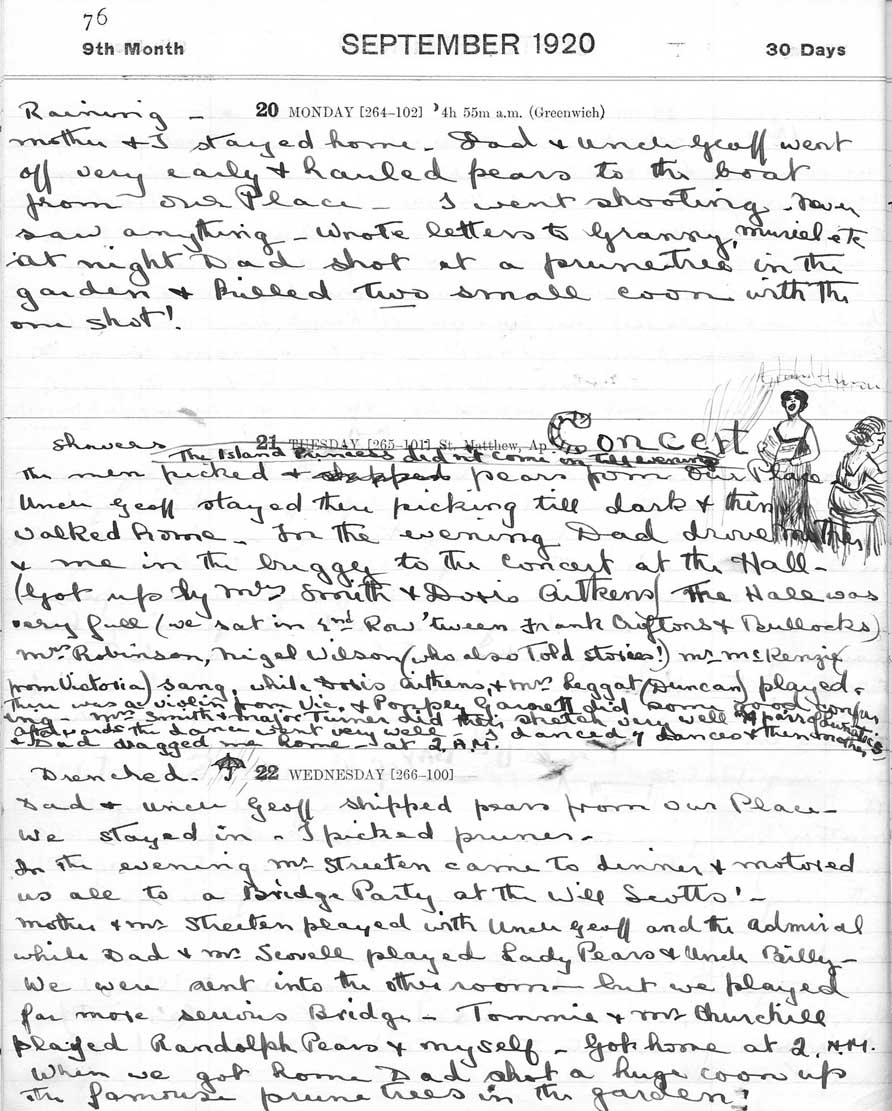 76
9th Month SEPTEMBER 1920 30 Days
Raining - 20 MONDAY [264-102] 4h 55m a.m. (Greenwich)
mother & I stayed home - Dad & Uncle Geoff went
off very early & hauled pears to the boat
from our Place - I went shooting. never
saw anything - Wrote letters to Granny, Muriel etc
at night Dad shot at a prune tree in the
garden & killed two small coon with the
one shot!
Showers 21 TUESDAY [265-101] St. Matthew, Ap Concert
The Island Princess didn't come in till evening
The men picked & shipped pears from Our Place
Uncle Geoff stayed there picking till dark & then
walked home - In the evening Dad drove mother
& me in the buggy to the Concert at the Hall -
(Got up by Mrs Smith & Doris Aitkens) The Hall was
very full (we sat in 4nd Row 'tween Frank Croftons & Bullocks)
Mrs Robinson, Nigel Wilson (who also Told stories!) Mr McKenzie
from Victoria) sang, while Doris Aitkens, & Mrs Leggat (Duncan) played.
There was a violin from Vic, & Popsey Garnett did some good conjur
ing - Mrs Smith & Major Turner did their sketch very well "A pair of lunatics"
Afterwards the dance went very well - I danced 7 dances & then mother
& Dad dragged me home - at 2 A.M.
Drenched. 22 WEDNESDAY [266-100]
Dad & Uncle Geoff shipped pears from our Place -
We stayed in - I picked prunes -
In the evening Mr Streeten came to dinner & motored
us all to a Bridge Party at the Will Scotts' -
Mother & Mr Streeten played with Uncle Geoff and the Admiral
while Dad & Mr Scovell played Lady Pears & Uncle Billy -
We were sent into the other room - but we played
far more serious Bridge - Tommie & Mr Churchill
played Randolph Pears & myself - Got home at 2. A.M.
When we got home Dad shot a huge coon up
the famous prune trees in the garden!